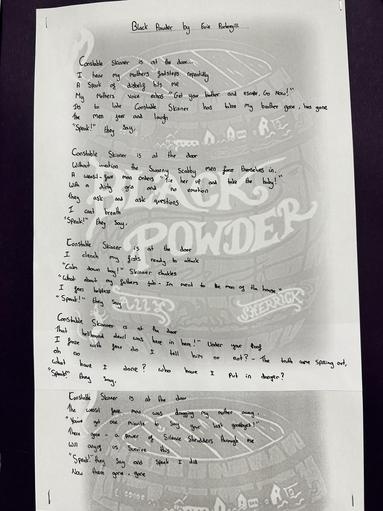 Black Powder by Evie
Constable Skinner is at the door...
I hear my mothers footsteps repeatedly
A Spark of disbelief hits me
My Mothers voice echos "Get your brother and escape, Go Now!"
Its to late Constable Skinner has taken my brother gone, has gone
The men jeer and laugh
"Speak!" they Say.
Constable Skinner is at the door
Without invitation the Swarmy Scabby men force themselves in.
A weasel-face man orders "Tie her up and take the baby!"
With a dirty grin and no emotion
they ask and ask questions
I cant breath
"Speak!" they Say.
Constable Skinner is at the door
I clench my fists ready to attack
"Calm down boy!" Skinner chuckles
"What about my fathers job - Im ment to be the man of the house"
I feel helpless
"Speak!" they Say
BLACK
POWDER
ALLY
SHERRICK
Constable Skinner is at the door
That hellbound devil was here in here!" Under your
I froze with fear do I tell him or not? - The truth came spilling out,
oh no
What have I done? Who have I put in danger?
"Speak!" they Say.
Constable Skinner is at the door
The weasel face man was dragging my mother away.
"Youve got one minute to Say your last goodbyes!"
There gone - a power of Silence Shudders through me
Will anyone Survive this
"Speak!" they Say and Speak I did
Now there gone - gone